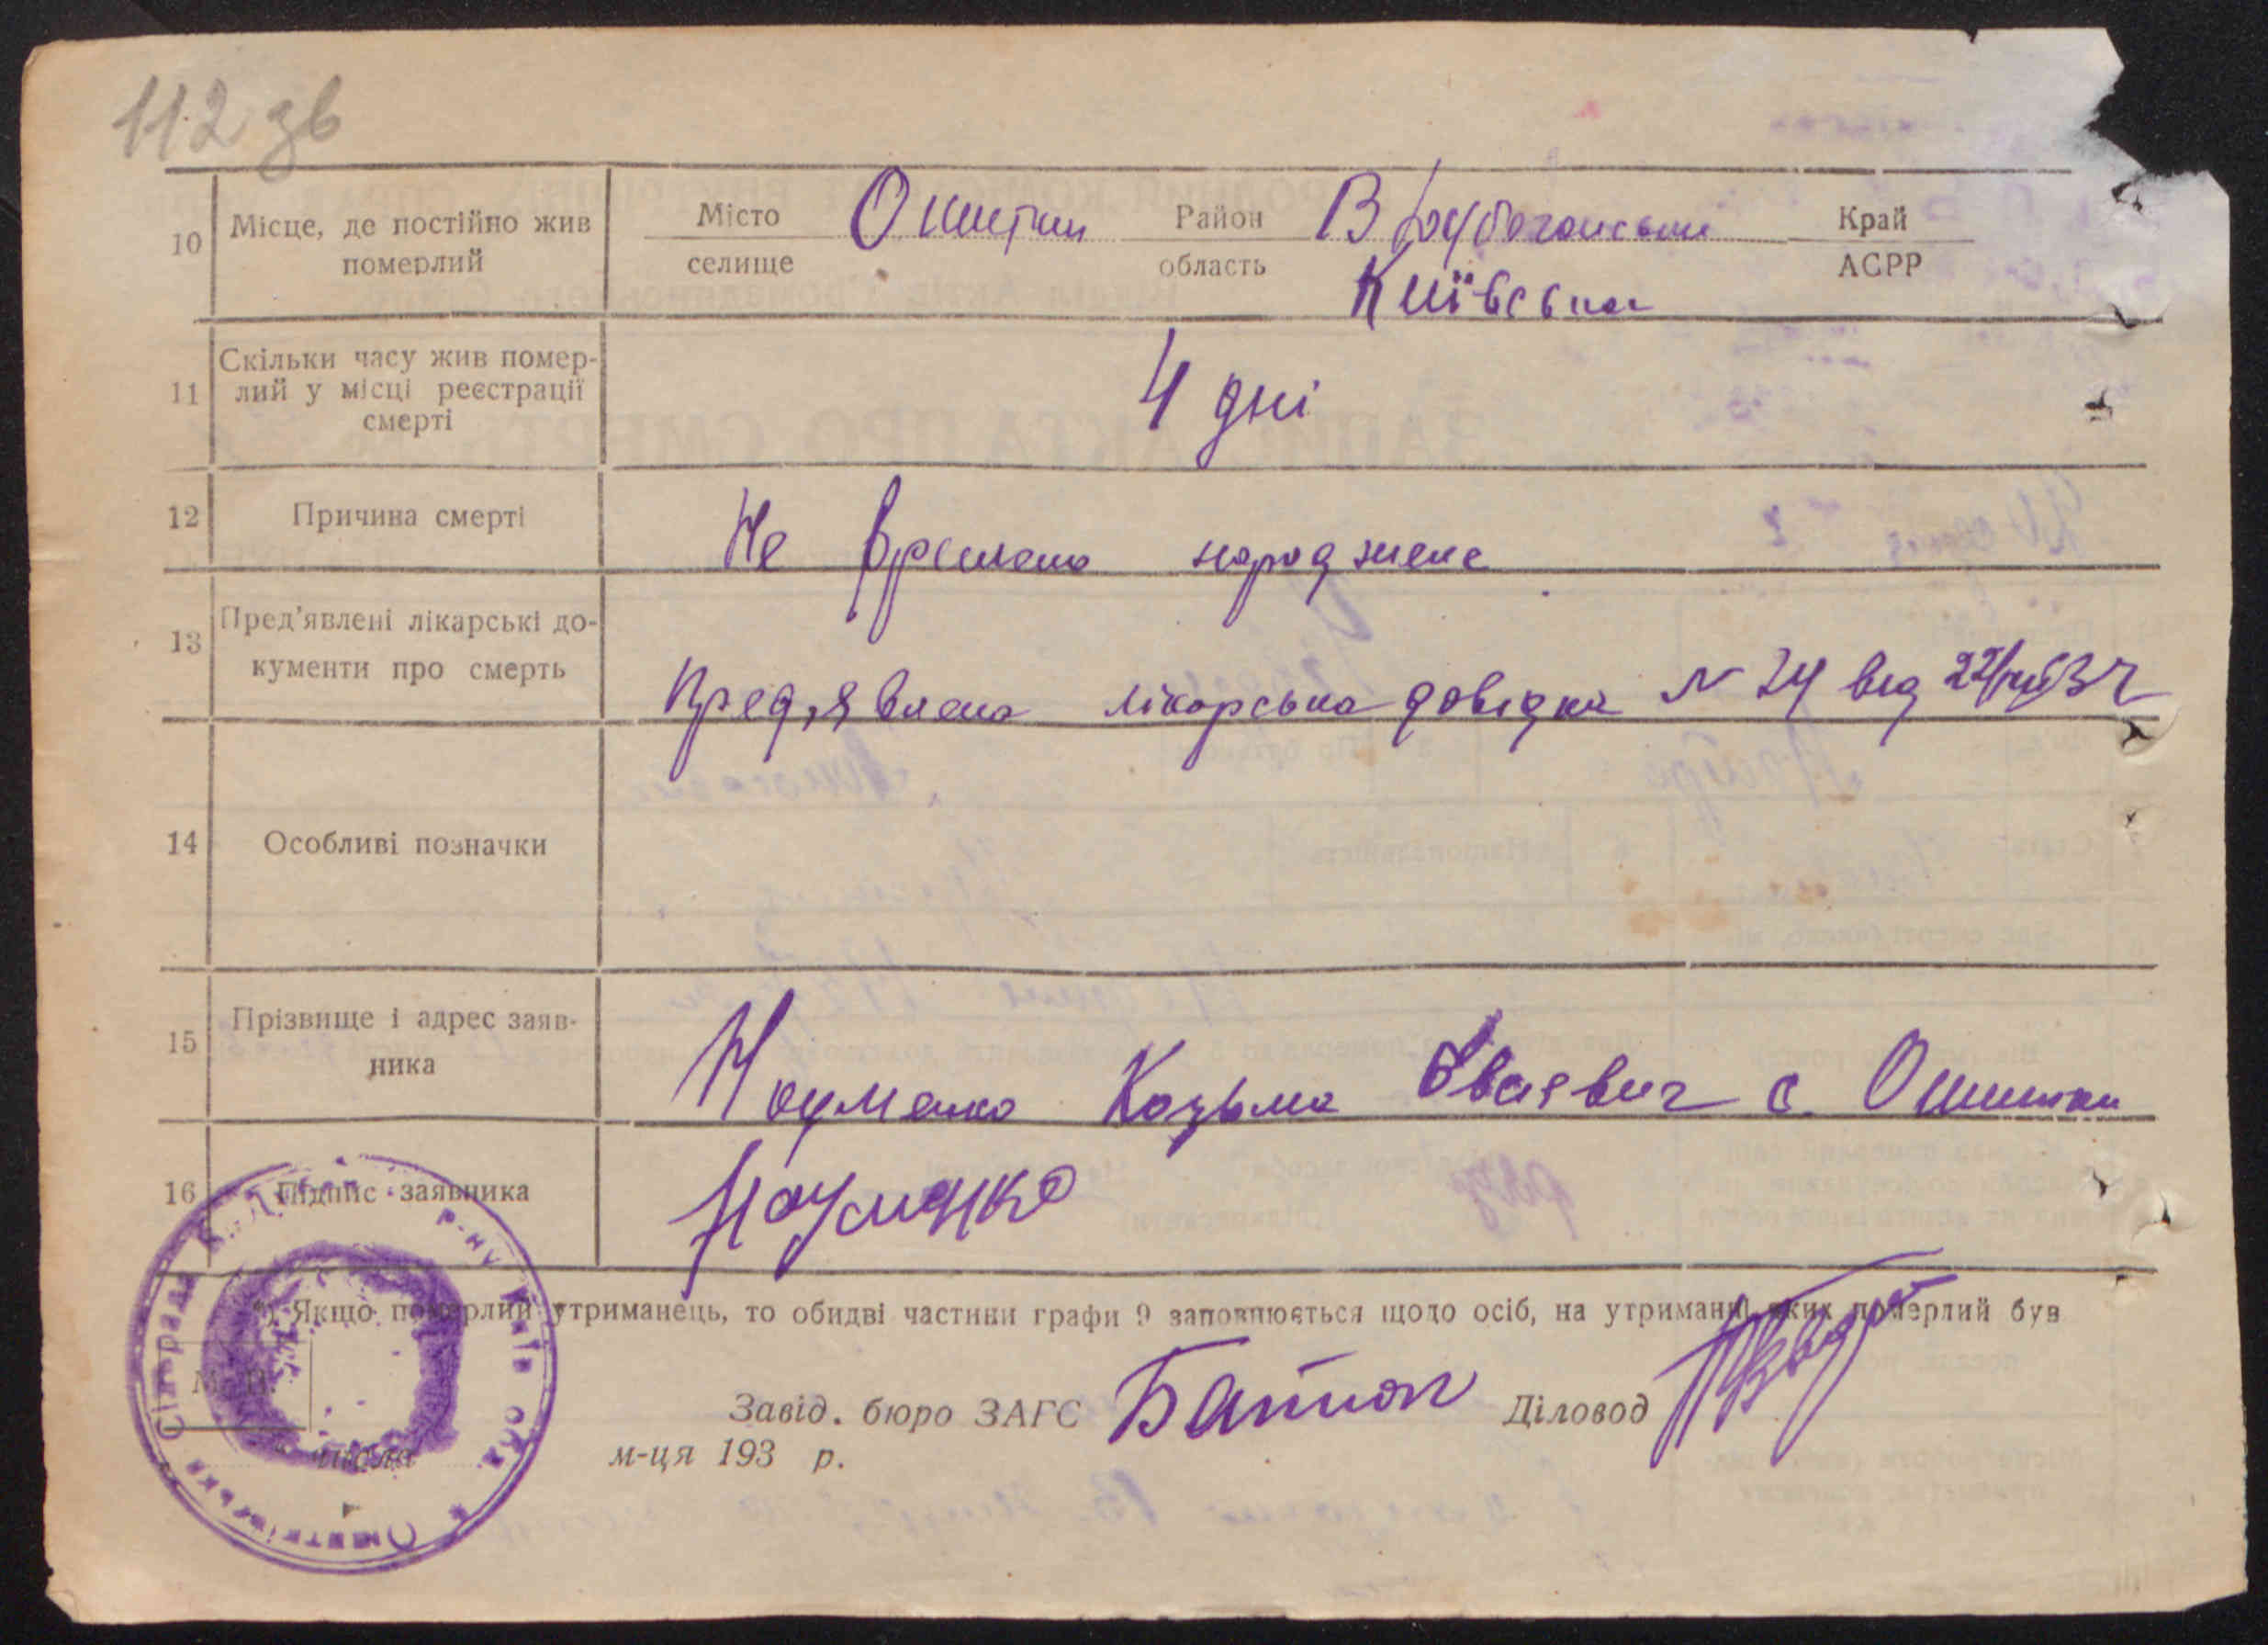 112 зв
10 Місце, де постійно жив померлий Місто селище Район область Київська Край АСРР
11 Скільки часу жив помер-
лий у місці реєстрації
смерті
4 дні
12 Причина смерті Не времено народжене
13 Пред'явлені лікарські до-
кументи про смерть
Пред,явлена лікарська довідка N 24 від
14 Особливі позначки
15 Прізвище і адрес заяв-
ника
Науменко Козьма с.
16 Підпис заявника Науменко
*) Якщо померлий утриманець, то обидві частини графи 9 заповнюється щодо осіб, на утриманні яких померлий був
М. П.
Завід. бюро ЗАГС Діловод
" числа м-ця 193 р.